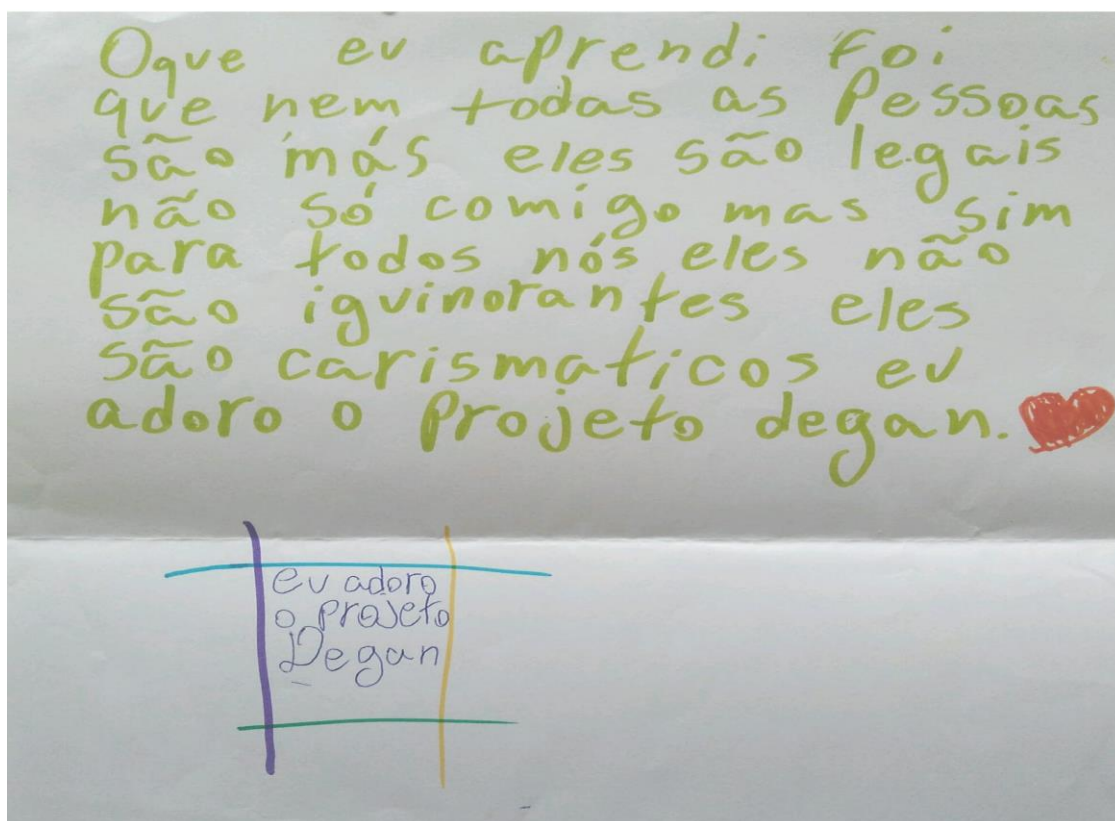 Oque eu aprendi foi
que nem todas as Pessoas
são más eles são legais
não só comigo mas sim
para todos nós eles não
são iguinorantes eles
são carismaticos eu
adoro o Projeto degan.
eu adoro
o projeto
Degan